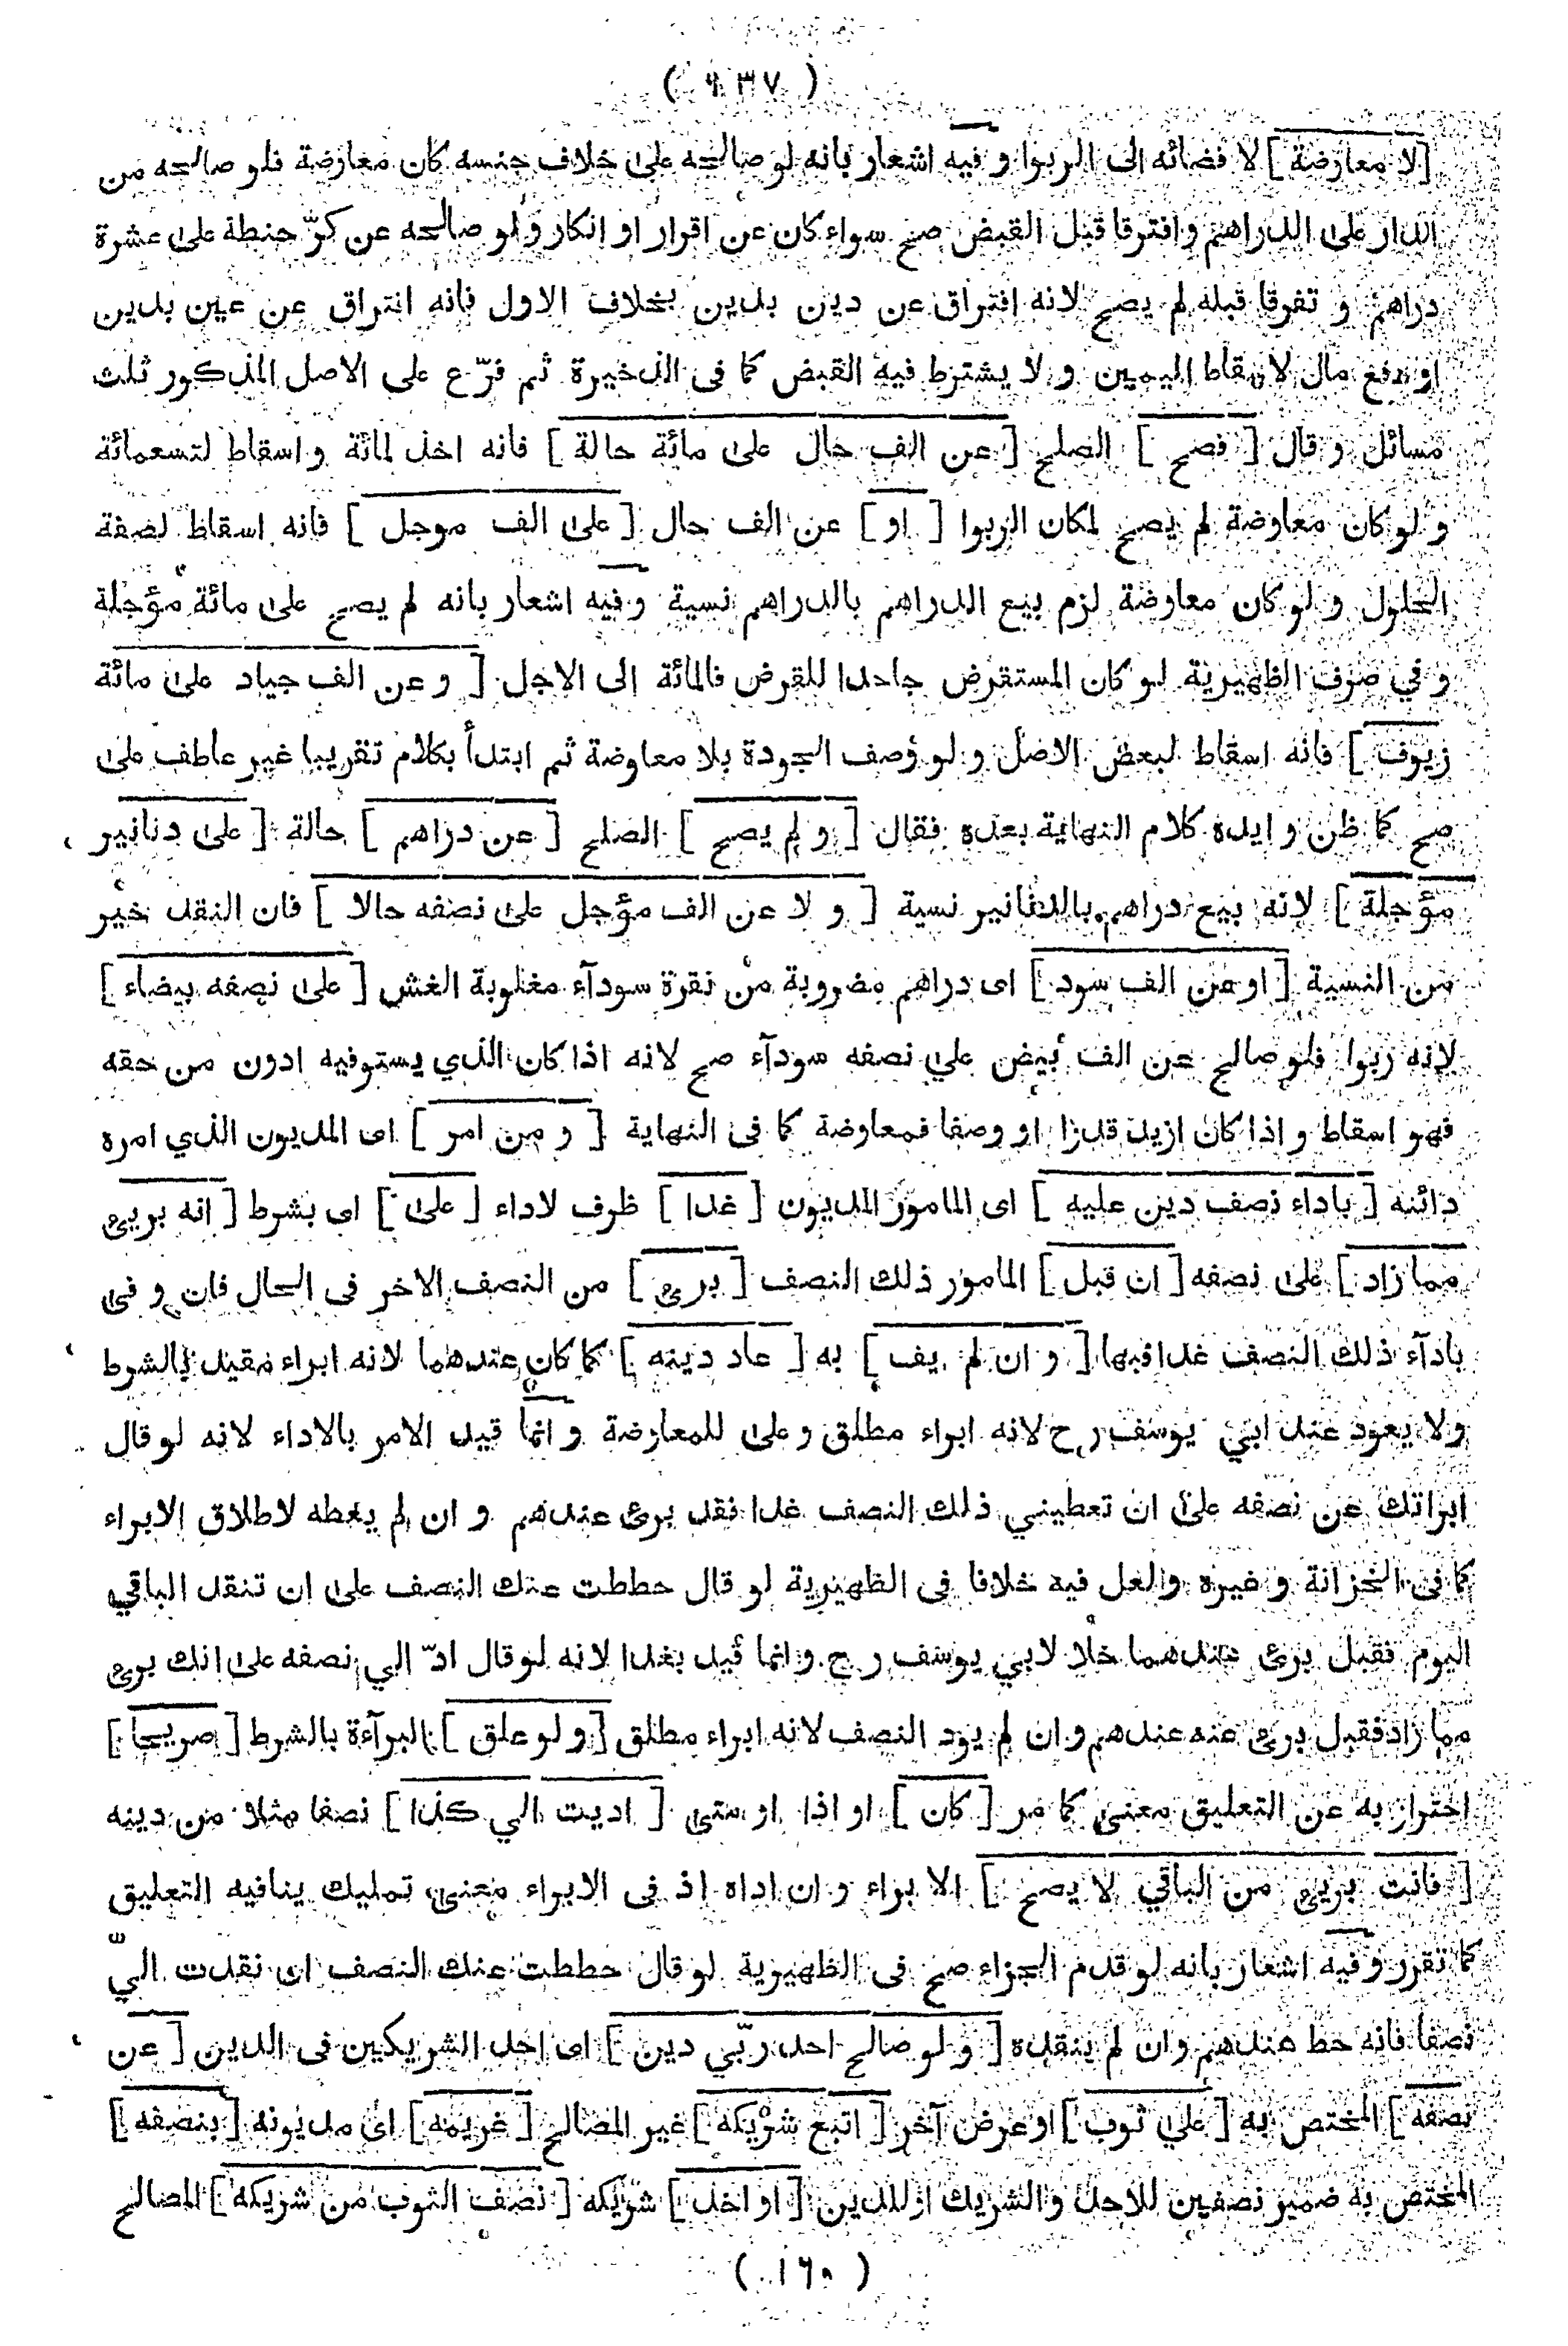 ( ٦٣٧ )
[ لا معارضة ] لا فضائه الى الربوا و فيه اشعار بانه لو صالحه على خلاف جنسه كان معارضة فلو صالحه من
الدار على الدراهم و افترقا قبل القبض صح سواء كان عن اقرار او انكار و لو صالحه عن كرّ حنطة على عشرة
دراهم و تفرقا قبله لم يصح لانه افتراق عن دين بدين بخلاف الاول فانه افتراق عن عين بدين
او دفع مال لاسقاط اليمين و لا يشترط فيه القبض كما فى الذخيرة ثم فرّع على الاصل المذكور ثلث
مسائل و قال [ فصح ] الصلح [ عن الف حال على مائة حالة ] فانه اخذ لمائة و اسقاط لتسعمائة
و لو كان معاوضة لم يصح لمكان الربوا [ او ] عن الف حال [ على الف موجل ] فانه اسقاط لصفة
الحلول و لو كان معاوضة لزم بيع الدراهم بالدراهم نسية و فيه اشعار بانه لم يصح على مائة مؤجلة
و في صرف الظهيرية لو كان المستقرض جاحدا للقرض فالمائة الى الاجل [ و عن الف جياد على مائة
زيوف ] فانه اسقاط لبعض الاصل و لو وصف الجودة بلا معاوضة ثم ابتدأ بكلام تقريبا غير عاطف على
صح كما ظن و ايده كلام النهاية بعده فقال [ و لم يصح ] الصلح [ عن دراهم ] حالة [ على دنانير
مؤجلة ] لانه بيع دراهم بالدنانير نسية [ و لا عن الف مؤجل على نصفه حالا ] فان النقد خير
من النسية [ او عن الف سود ] اى دراهم مضروبة من نقرة سودآء مغلوبة الغش [ على نصفه بيضاء ]
لانه ربوا فلو صالح عن الف أبيض علي نصفه سودآء صح لانه اذا كان الذي يستوفيه ادون من حقه
فهو اسقاط و اذا كان ازيد قدرا او وصفا فمعاوضة كما فى النهاية [ و من امر ] اى المديون الذي امره
دائنه [ باداء نصف دين عليه ] اى المامور المديون [ غدا ] ظرف لاداء [ على ] اى بشرط [ انه بريئ
مما زاد ] على نصفه [ ان قبل ] المامور ذلك النصف [ برئ ] من النصف الاخر فى الحال فان و فى
بادآء ذلك النصف غدا فبها [ و ان لم يف ] به [ عاد دينه ] كما كان عندهما لانه ابراء مقيد بالشرط
ولا يعود عند ابي يوسف رح لانه ابراء مطلق و على للمعارضة و انما قيد الامر بالاداء لانه لو قال
ابراتك عن نصفه على ان تعطيني ذلك النصف غدا فقد برئ عندهم و ان لم يعطه لاطلاق الابراء
كما فى الخزانة و غيره والعل فيه خلافا فى الظهيرية لو قال حططت عنك النصف على ان تنقد الباقي
اليوم فقبل برئ عندهما خلا لابي يوسف رح و انما قيد بغدا لانه لو قال ادّ الي نصفه على انك برئ
مما زاد فقبل برئ عنه عندهم و ان لم يود النصف لانه ابراء مطلق [ و لو علق ] البرآءة بالشرط [ صريحا ]
احتراز به عن التعليق معنى كما مر [ كان ] او اذا او متى [ اديت الي كذا ] نصفا مثلا من دينه
[ فانت بريئ من الباقي لا يصح ] الابراء و ان اداه اذ فى الابراء معنى تمليك ينافيه التعليق
كما تقرر و فيه اشعار بانه لو قدم الجزاء صح فى الظهيرية لو قال حططت عنك النصف ان نقدت اليّ
نصفا فانه حط عندهم و ان لم ينقده [ و لو صالح احد ربّي دين ] اى احد الشريكين فى الدين [ عن
نصفه ] المختص به [ علي ثوب ] او عرض آخر [ اتبع شريكه ] غير المصالح [ غريمه ] اى مديونه [ بنصفه ]
المختص به ضمير نصفين للاحد والشريك او للدين [ او اخذ ] شريكه [ نصف الثوب من شريكه ] المصالح
( ١٦٠ )